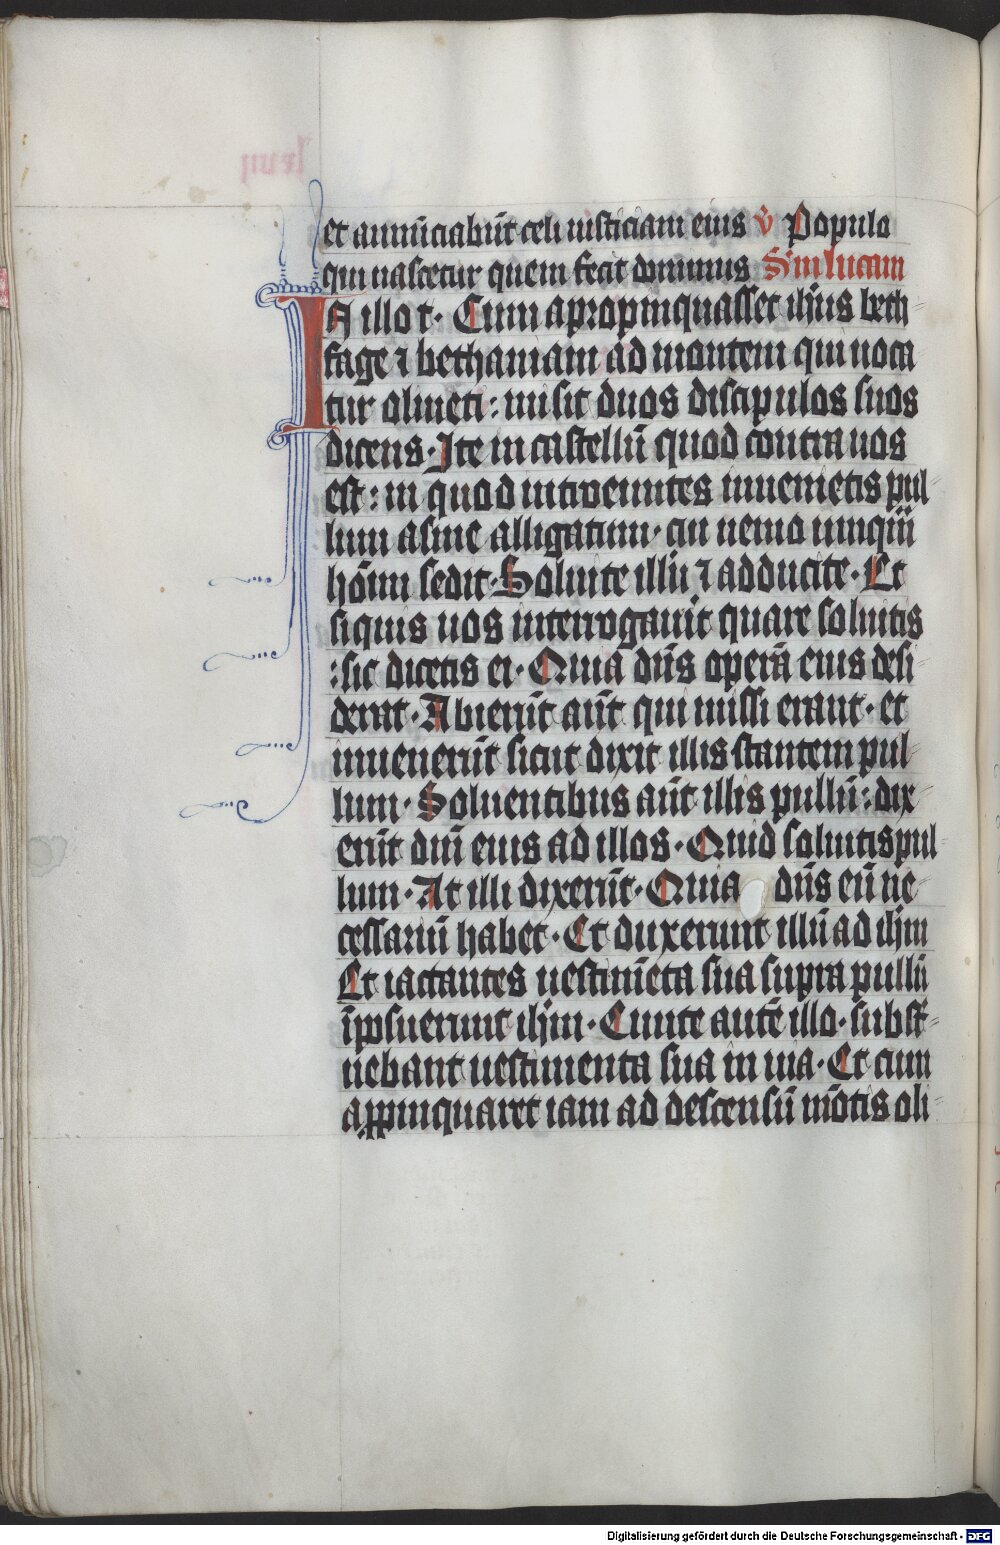 et annūciabūt celi iusticiam eius v̄ Populo
qui nascetur quem fecit dominus S'm lucam
IN illo t· Cum apropinquasset ih̄us beth
fage ⁊ bethaniam ad montem qui uoca
tur oliueti: misit duos discipulos suos
dicens· Ite in castellū quod contra uos
est: in quod introeuntes inuenietis pul
lum asine alligatum· cui nemo unquā
hōīm sedit· Soluite illū ⁊ adducite· Et
siquis uos interrogauit quare soluitis
:sic dicetis ei· Quia dn̄s operā eius desi
derat· Abierūt aūt qui missi erant· et
inuenerūt sicut dixit illis stantem pul
lum· Soluentibus aūt illis pullū: dix
erūt dn̄i eius ad illos· Quid soluitis pul
lum· At illi dixerūt· Quia dn̄s eū ne
cessariū habet· Et duxerunt illū ad ih̄m
Et iactantes uestimēta sua supra pullū
īposuerunt ih̄m· Eunte autē illo· subst̄
nebant uestimenta sua in uia· Et cum
appinquaret iam ad descensū mōtis oli
Digitalisierung gefördert durch die Deutsche Forschungsgemeinschaft - DFG